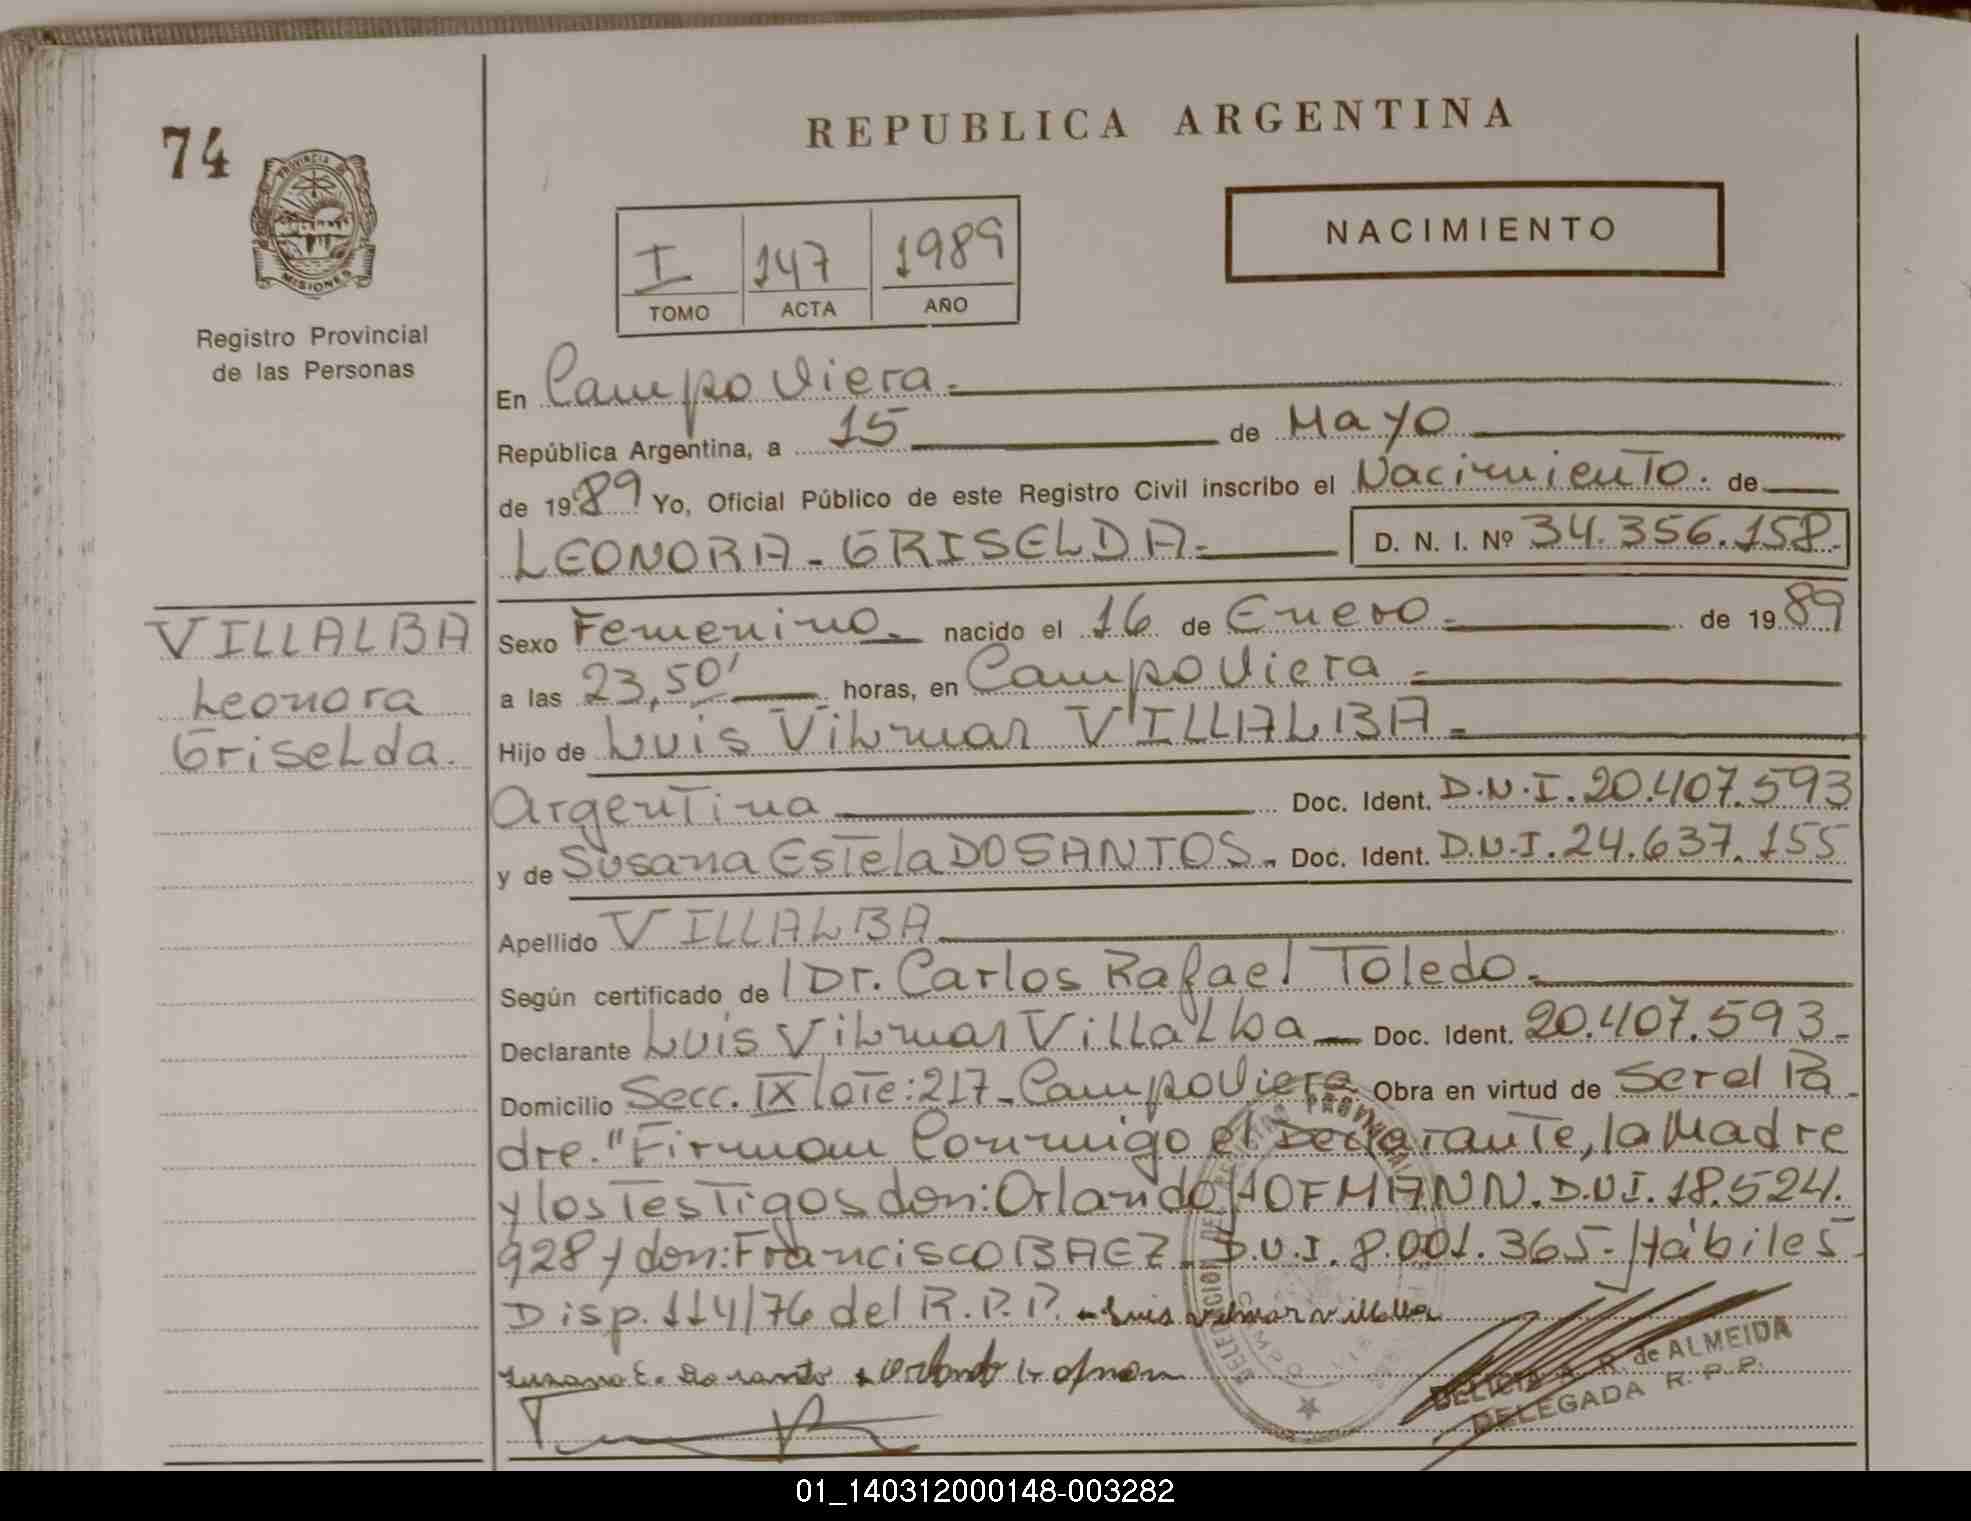 74
REPUBLICA ARGENTINA
PROVINCIA DE
MISIONES
Registro Provincial
de las Personas
NACIMIENTO
I 147 1989
TOMO ACTA AÑO
En Campo Viera.-
República Argentina, a 15 de Mayo
de 1989 Yo, Oficial Público de este Registro Civil inscribo el Nacimiento. de
LEONORA - GRISELDA.- D. N. I. Nº 34.356.158.-
VILLALBA
Leonora
Griselda.
Sexo Femenino.- nacido el 16 de Enero.- de 1989
a las 23,50' horas, en Campo Viera.-
Hijo de Luis Vilmar VILLALBA.-
Argentina Doc. Ident. D.N.I. 20.407.593
y de Susana Estela DOSANTOS.- Doc. Ident. D.N.I. 24.637.155
Apellido VILLALBA
Según certificado de / Dr. Carlos Rafael Toledo.-
Declarante Luis Vilmar Villalba — Doc. Ident. 20.407.593.-
Domicilio Secc. IX lote: 217 - Campo Viera Obra en virtud de Ser el Pa-
dre. "Firman Conmigo el Declarante, la Madre
y los Testigos don: Orlando HOFMANN. D.N.I. 18.524.
928 y don: Francisco BAEZ. D.N.I. 8.001.365.- Hábiles.-
Disp. 114/76 del R.P.P. - Luis Vilmar Villalba
Susana E. Do santo Orlando Hofman
DELICIA A. R. de ALMEIDA
DELEGADA R. P. P.
01_140312000148-003282